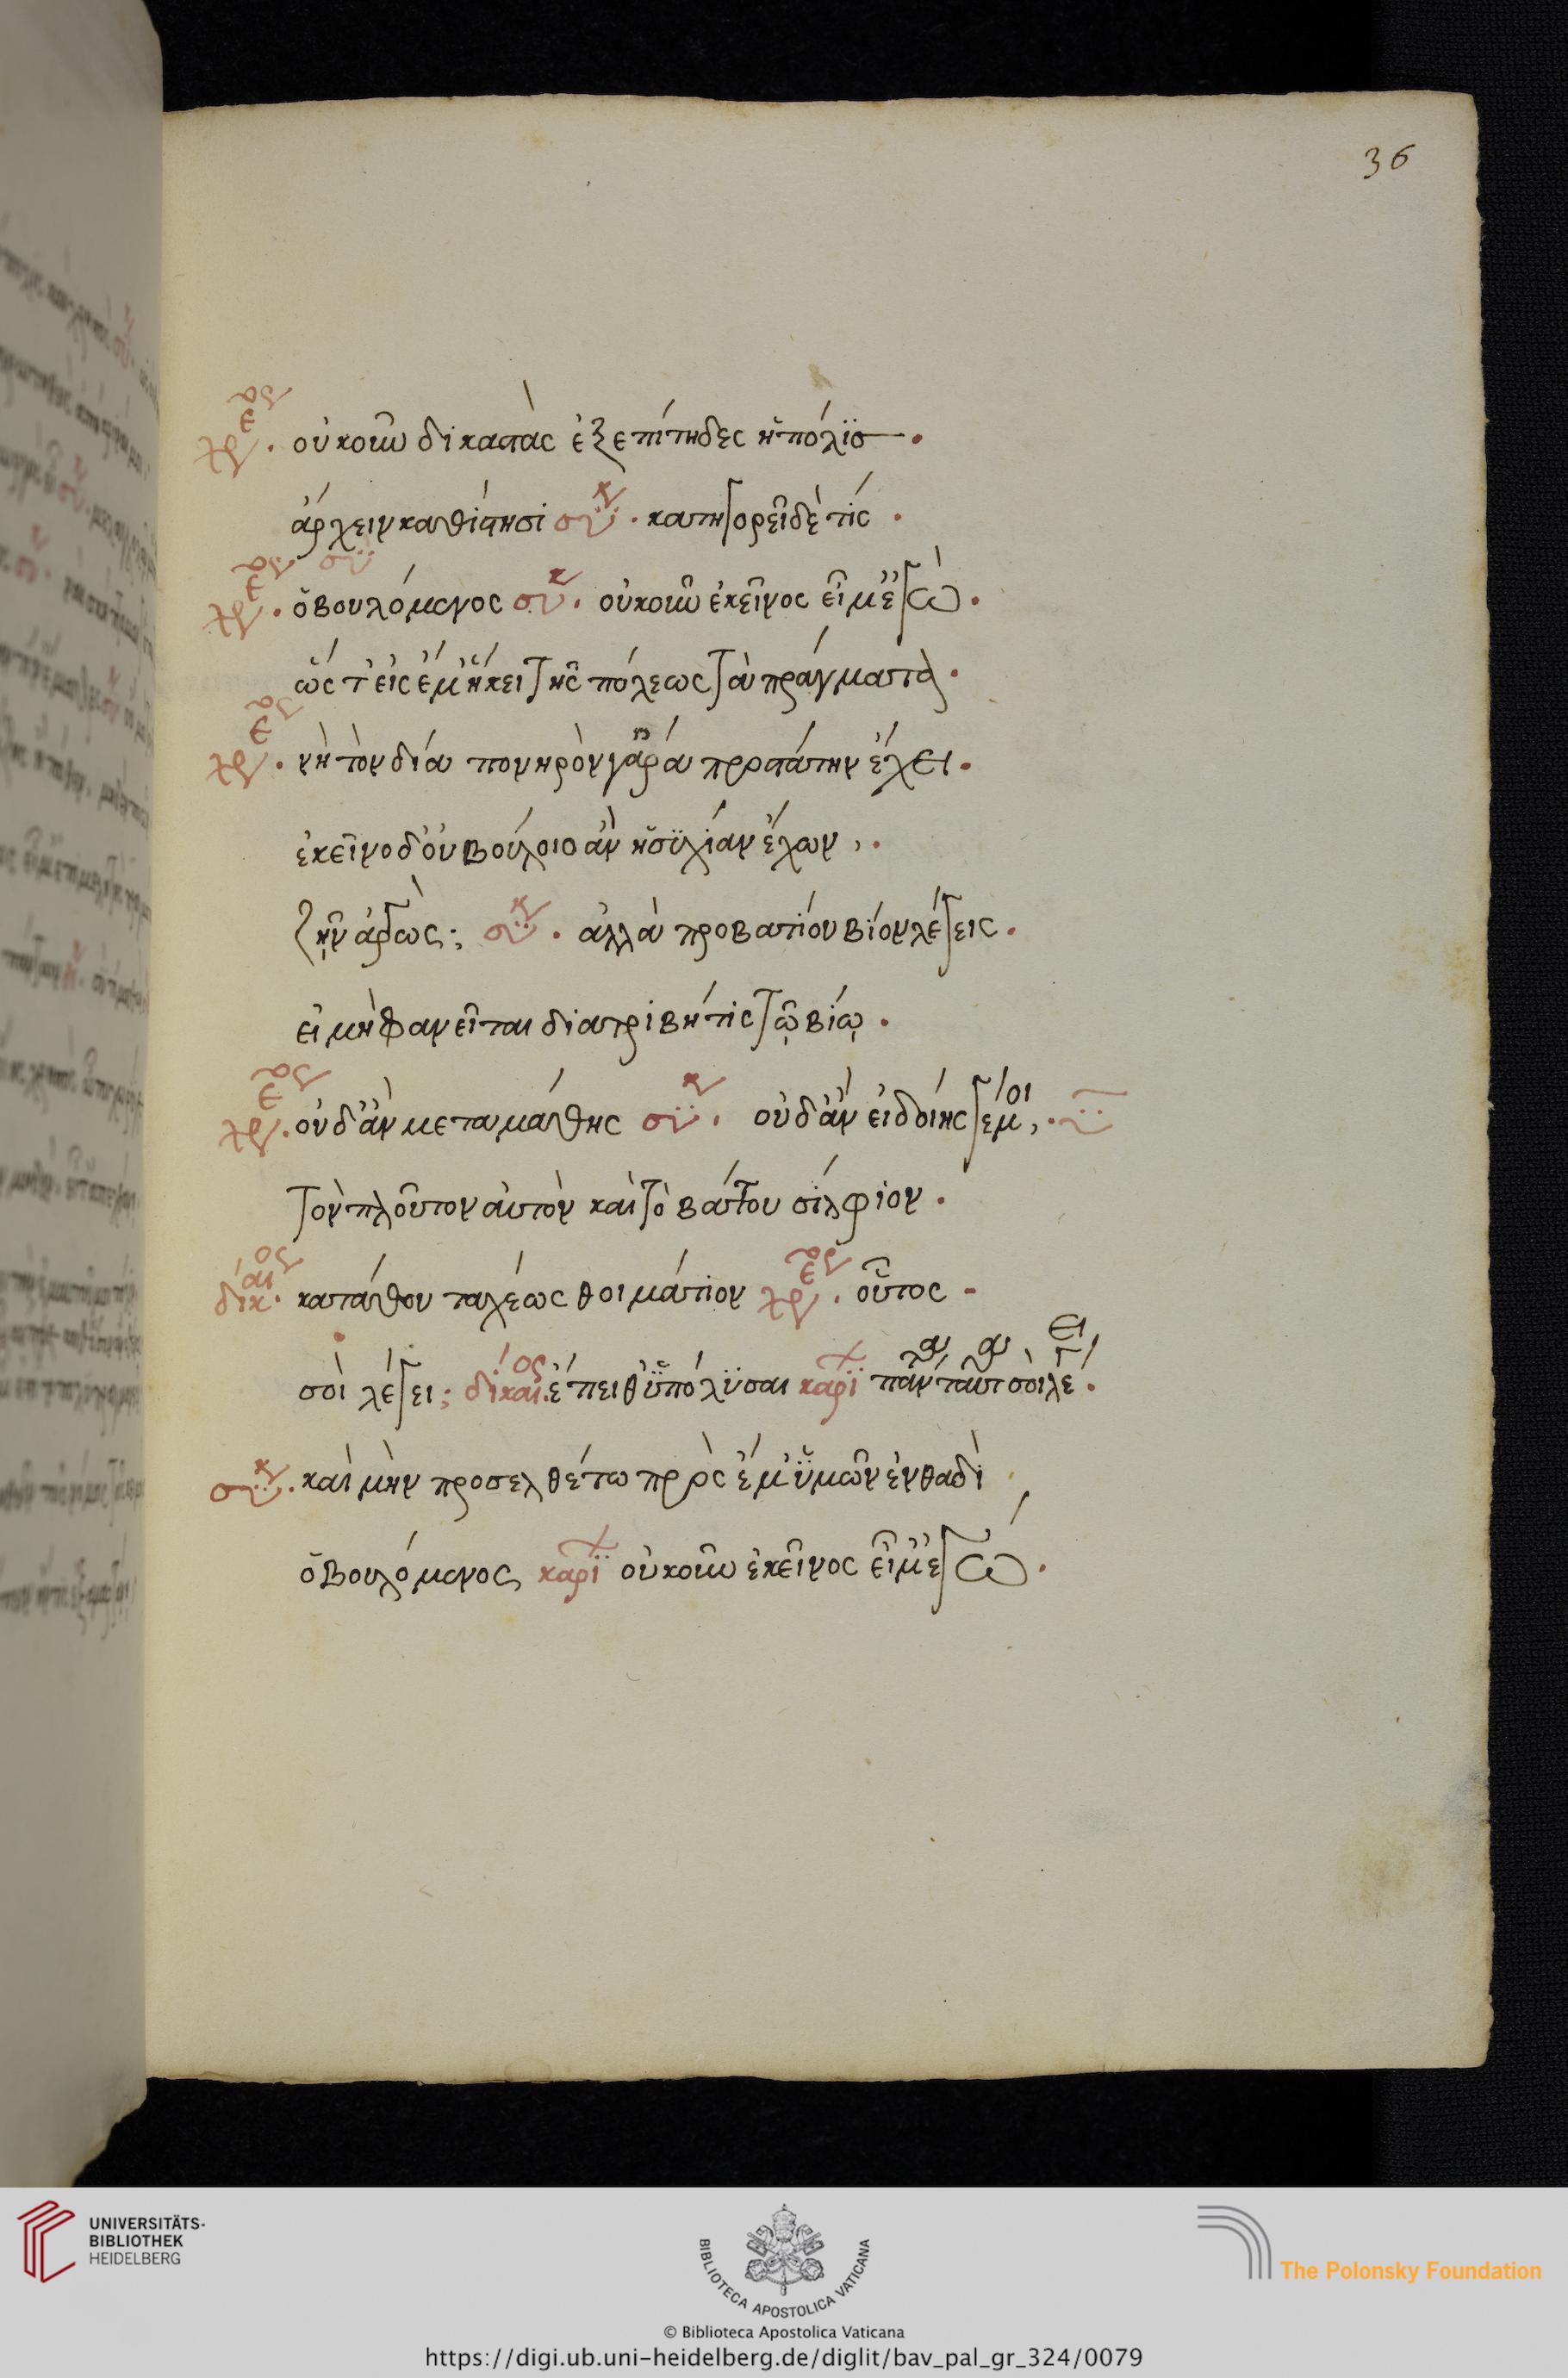 36
χρεμ. οὐκοῦν δικαστὰς ἐξεπίτηδες ἡ πόλις.
ἄρχειν καθίστησι συκ. κατηγορεῖ δὲ τίς.
χρεμ. ὁ βουλόμενος συκ. οὐκοῦν ἐκεῖνος εἶμ' ἐγὼ.
ὥς τ' εἰς ἔμ' ἥκει τῆς πόλεως τὰ πράγματα.
χρεμ. νὴ τὸν δία πονηρὸν γ' ἄρα προστάτην ἔχει.
ἐκεῖνο δ' οὐ βούλοιο ἂν ἡσυχίαν ἔχων,.
ζῆν ἀργὼς; συκ. ἀλλὰ προβατίου βίον λέγεις.
εἰ μὴ φανεῖται διατριβή τις τῷ βίῳ.
χρεμ. οὐδ' ἂν μεταμάθης συκ. οὐδ' ἂν εἰ δοίης γέ μοι,.
τὸν πλοῦτον αὐτὸν καὶ τὸ βάττου σίλφιον.
δίκαιος. κατάθου ταχέως θοιμάτιον χρεμ. οὗτος.
σοὶ λέγει; δίκαιος. ἔπειθ' ὑπόλυσαι καρί πάντα ταῦτα σοὶ λέγει.
συκ. καὶ μὴν προσελθέτω πρὸς ἔμ' ὑμῶν ἐνθαδὶ
ὁ βουλόμενος καρί οὐκοῦν ἐκεῖνος εἶμ' ἐγώ.
UNIVERSITÄTS-
BIBLIOTHEK
HEIDELBERG
BIBLIOTECA APOSTOLICA VATICANA
The Polonsky Foundation
© Biblioteca Apostolica Vaticana
https://digi.ub.uni-heidelberg.de/diglit/bav_pal_gr_324/0079